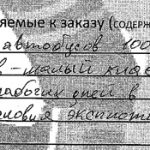 яемые к заказу (СОДЕРЖ
автобусов 100
в - малый клас
рабочих дней в
словия эксплоат